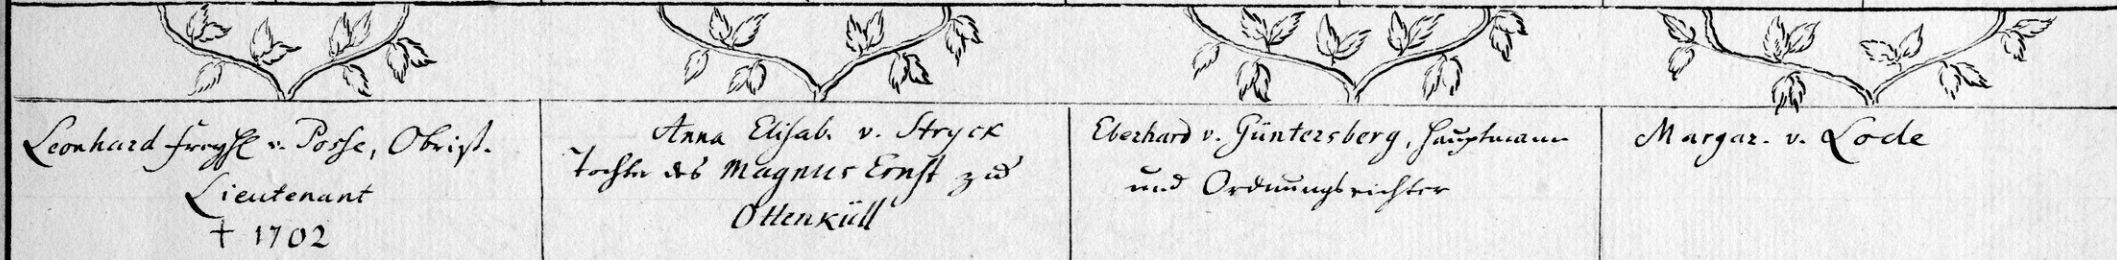 Leonhard Freyh v. Posse, Obrist.
Lieutenant
† 1702
Anna Elisab. v. Stryck
Tochter des Magnus Ernst zu
Ottenküll
Eberhard v. Güntersberg, Hauptmann
und Ordnungsrichter
Margar. v. Lode